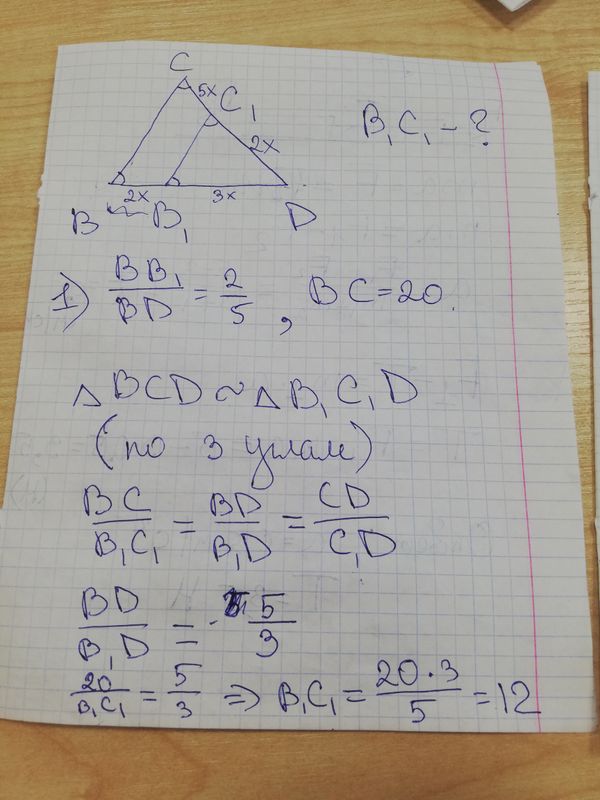 C
5x C₁
B₁C₁ - ?
2x
2x 3x
B B₁ D
1) BB₁/BD = 2/5, BC = 20.
△BCD ~ △B₁C₁D
(по 3 углам)
BC/B₁C₁ = BD/B₁D = CD/C₁D
BD/B₁D = 5/3
20/B₁C₁ = 5/3 => B₁C₁ = 20·3/5 = 12